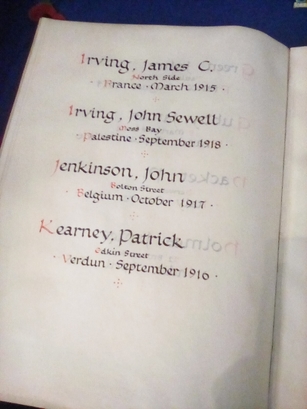 Irving, James C.
North Side
France · March 1915 ·
Irving, John Sewell
Moss Bay
Palestine · September 1918 ·
Jenkinson, John
Bolton Street
· Belgium · October 1917 ·
Kearney, Patrick
Edkin Street
· Verdun · September 1916 ·